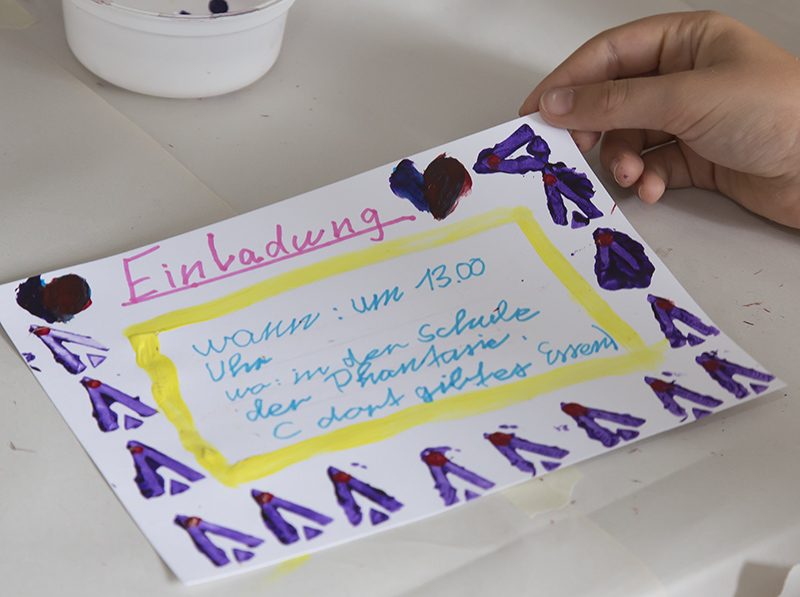 Einladung
wann : um 13.00
Uhr
wo: in der Schule
der Phantasie.
( dort gibt es Essen)